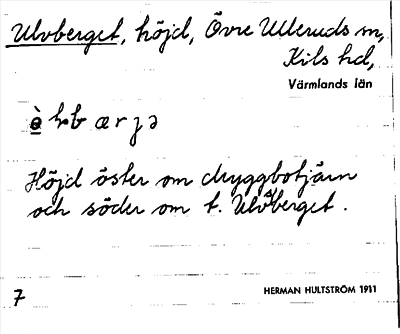 Ulvberget, höjd, Övre Ulleruds sn,
Kils hd,
Värmlands län
Höjd öster om dryggbotjärn
och söder om t. Ulvberget.
7
HERMAN HULTSTRÖM 1911